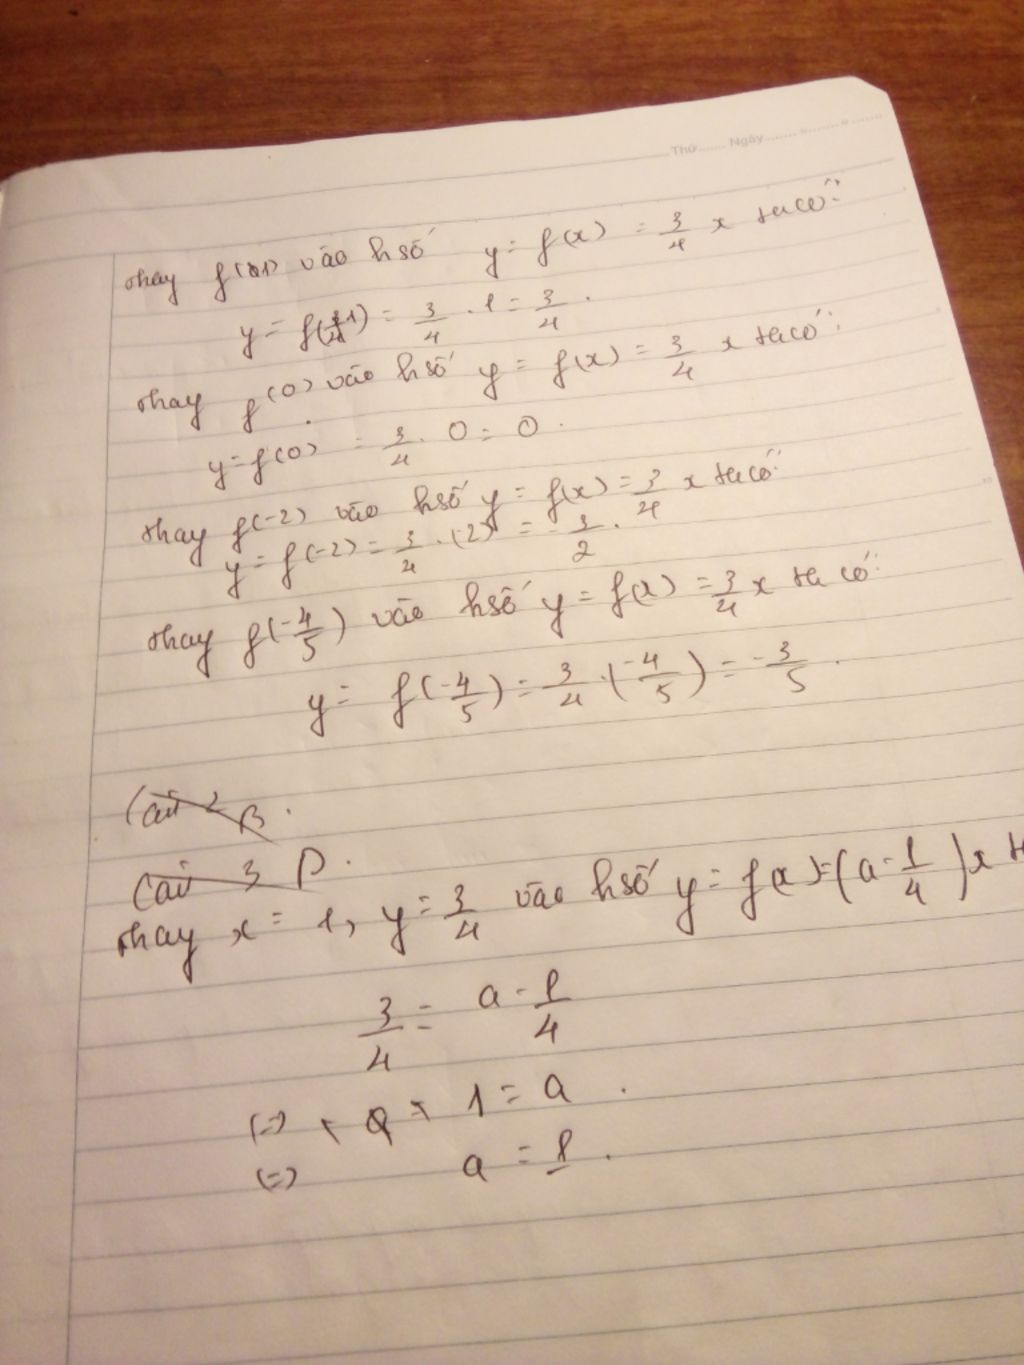 Thứ ...... Ngày ...... 
thay f(1) vào hsố y = f(x) = 3/4 x ta có:
y = f(1) = 3/4 . 1 = 3/4 .
thay f(0) vào hsố y = f(x) = 3/4 x ta có:
y = f(0) = 3/4 . 0 = 0 .
thay f(-2) vào hsố y = f(x) = 3/4 x ta có:
y = f(-2) = 3/4 . (-2) = -3/2 .
thay f(-4/5) vào hsố y = f(x) = 3/4 x ta có:
y = f(-4/5) = 3/4 . (-4/5) = -3/5 .
Câu 2 B .
Câu 3 D .
thay x = 1, y = 3/4 vào hsố y = f(x) = (a - 1/4) x t
3/4 = a - 1/4
(=) 1 = a .
(=) a = 1 .